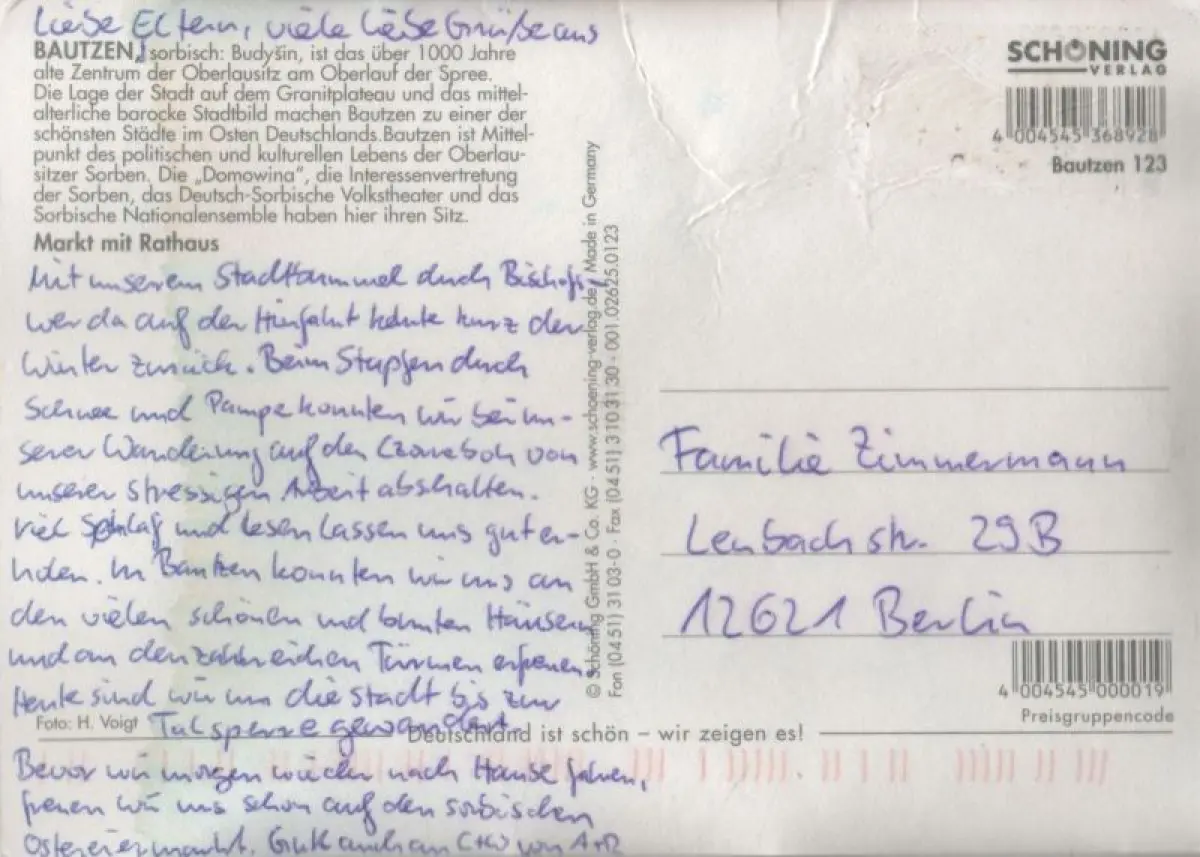 Liebe Eltern, viele liebe Grüße aus
BAUTZEN, sorbisch: Budyšin, ist das über 1000 Jahre
alte Zentrum der Oberlausitz am Oberlauf der Spree.
Die Lage der Stadt auf dem Granitplateau und das mittel-
alterliche barocke Stadtbild machen Bautzen zu einer der
schönsten Städte im Osten Deutschlands.Bautzen ist Mittel-
punkt des politischen und kulturellen Lebens der Oberlau-
sitzer Sorben. Die „Domowina", die Interessenvertretung
der Sorben, das Deutsch-Sorbische Volkstheater und das
Sorbische Nationalensemble haben hier ihren Sitz.
Markt mit Rathaus
Mit unserem Stadtbummel durch Bischofs-
werda auf der Hinfahrt kehrte kurz der
Winter zurück. Beim Stapfen durch
Schnee und Pampe konnten wir bei un-
serer Wanderung auf den Czorneboh von
unserer stressigen Arbeit abschalten.
Viel Schlaf und Lesen lassen uns gut er-
holen. In Bautzen konnten wir uns an
den vielen schönen und bunten Häusern
und an den zahlreichen Türmen erfreuen.
Heute sind wir um die Stadt bis zur
Foto: H. Voigt
Talsperre gewandert.
Bevor wir morgen wieder nach Hause fahren,
freuen wir uns schon auf den sorbischen
Ostereiermarkt. Gruß auch an C+W von A+R
© Schöning GmbH & Co. KG · www.schoening-verlag.de · Made in Germany
Fon (04 51) 31 03-0 · Fax (04 51) 310 31 30 - 001.02625.0123
SCHÖNING
VERLAG
4 004545 368928
Bautzen 123
Familie Zimmermann
Lenbachstr. 29B
12621 Berlin
4 004545 000019
Preisgruppencode
Deutschland ist schön – wir zeigen es!